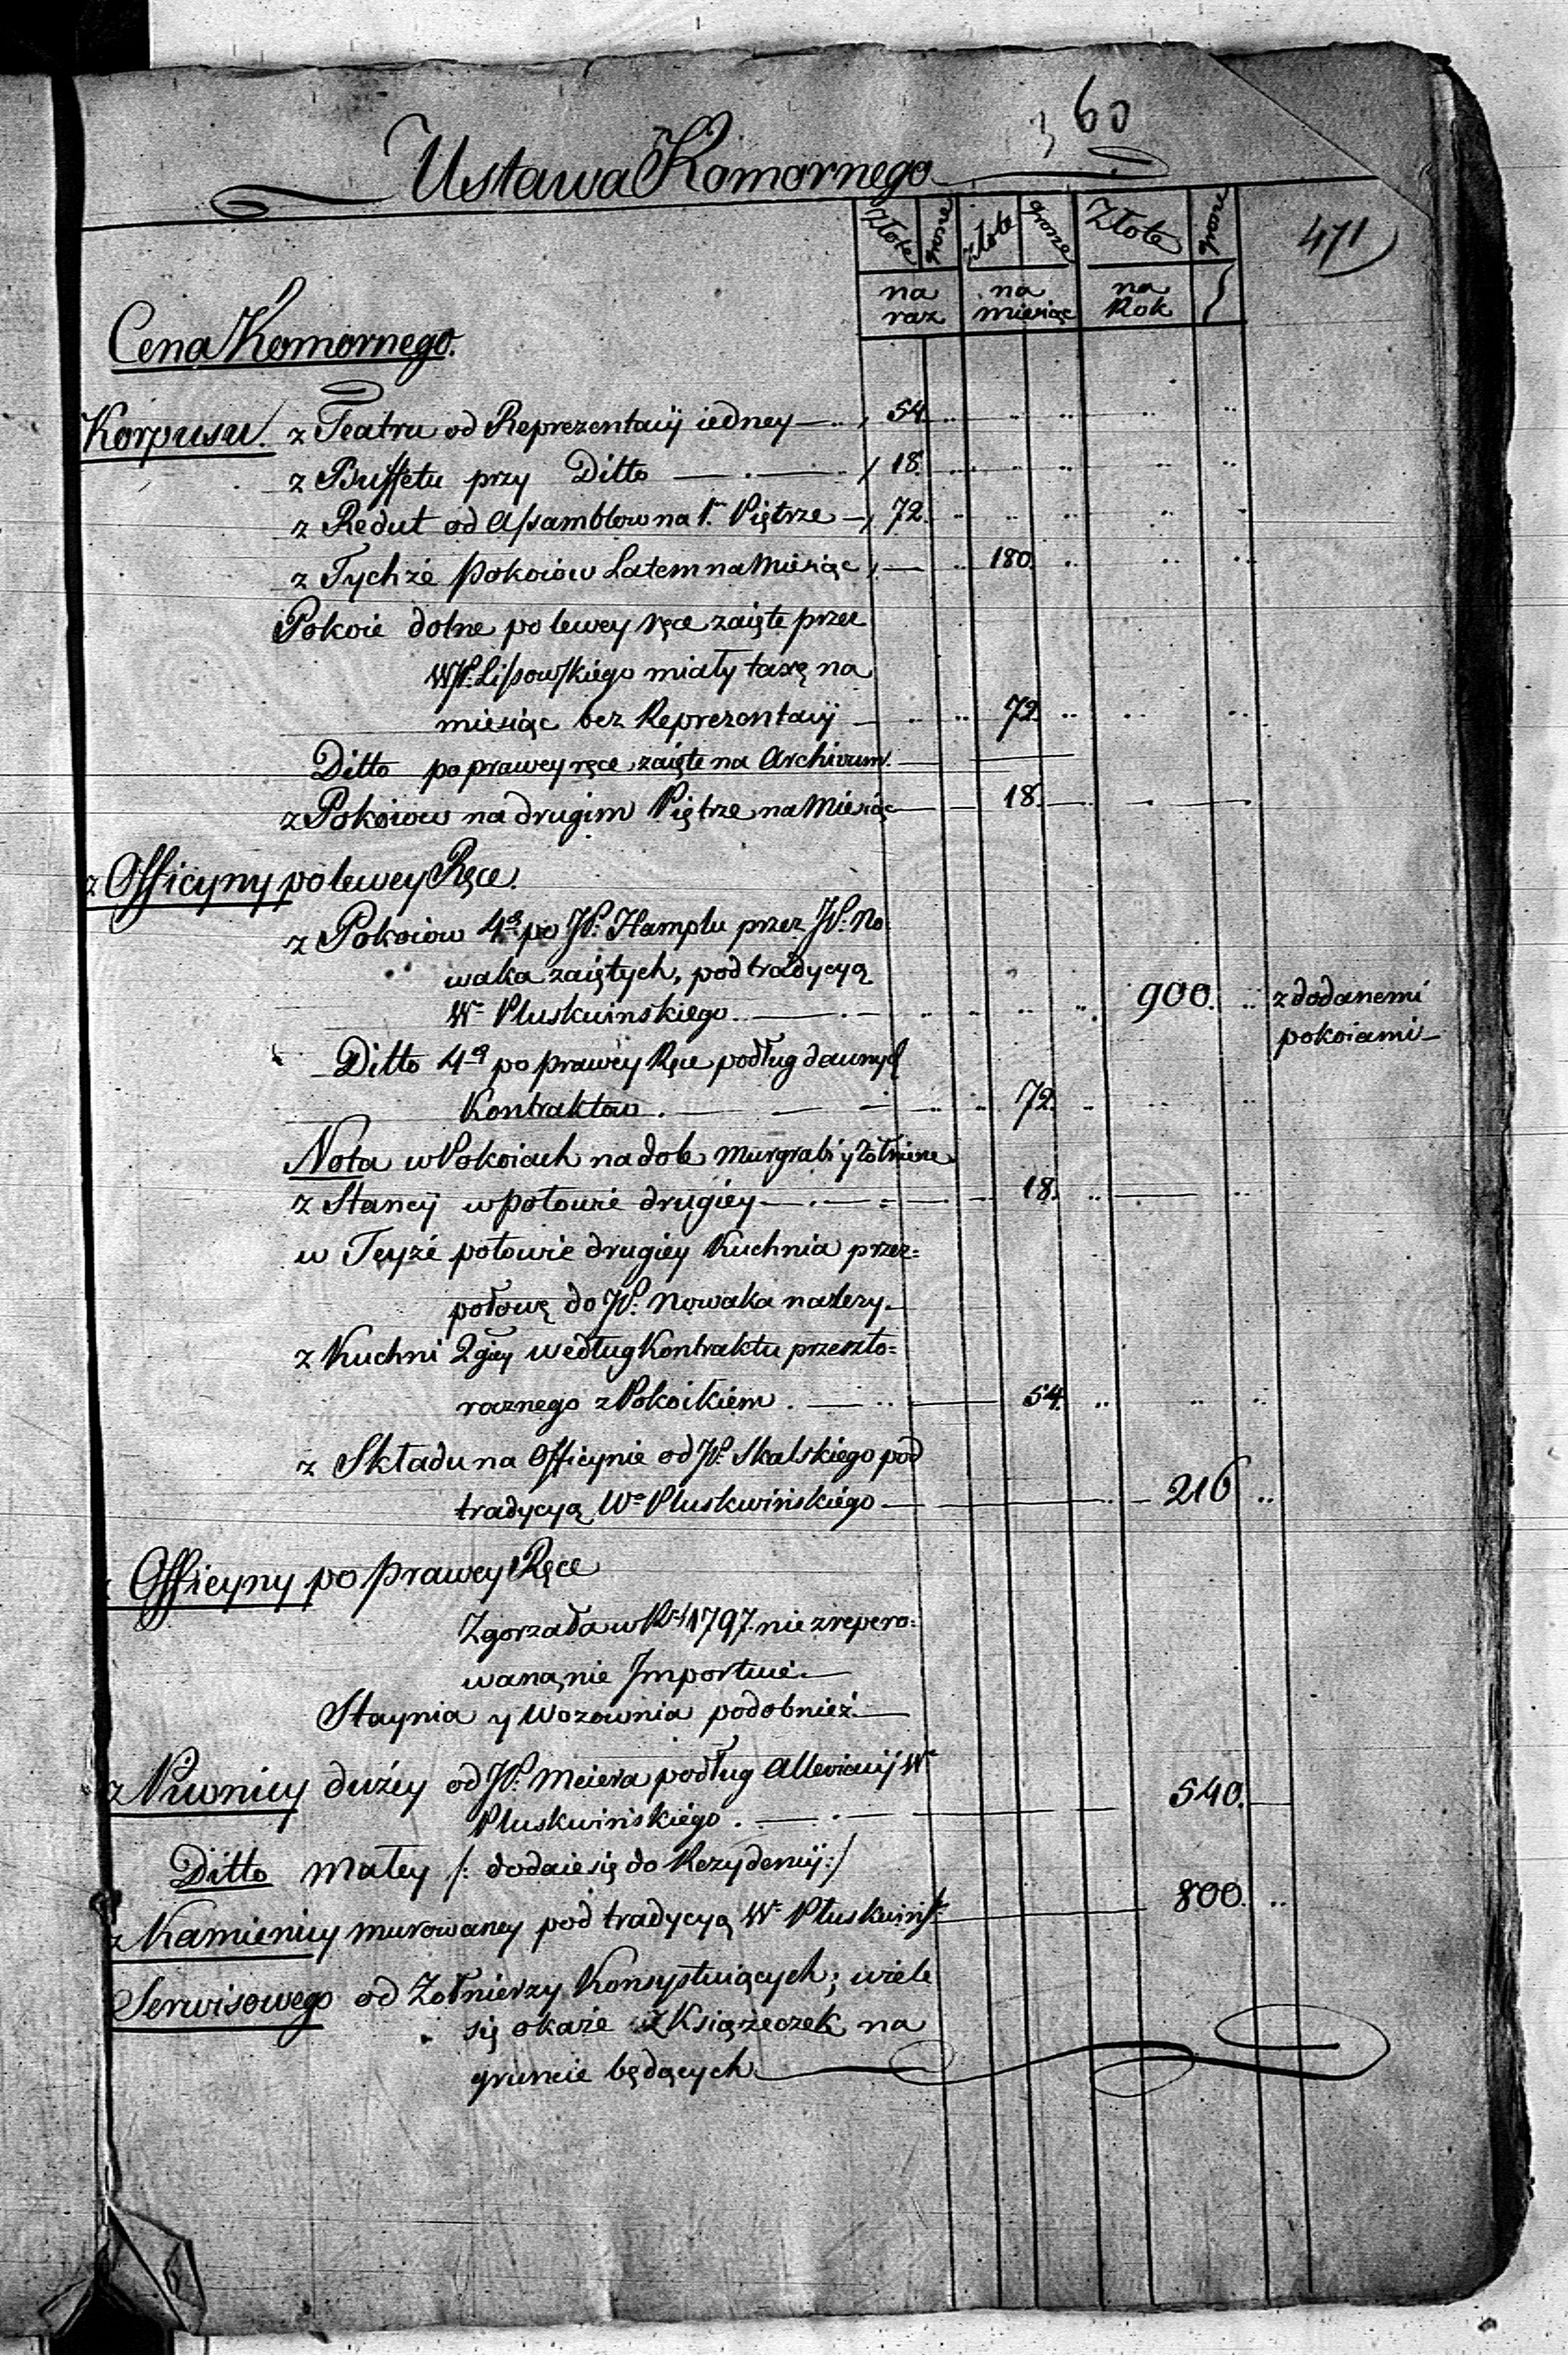 60
Ustawa Komornego
471
Złote grosze Złote grosze Złote grosze
na raz na miesiąc na Rok
Cena Komornego.
Korpusu. z Teatru od Reprezentacij iedney 54.
z Buffetu przy Ditto 18.
z Redut od Assamblow na 1m Piętrze 72.
z Tychże pokoiow Latem na Miesiąc 180.
Pokoie dolne po lewey ręce zaięte przez
WP. Lissowskiego miały taxę na
miesiąc bez Reprezentacij 72.
Ditto po prawey ręce zaięte na Archivum.
z Pokoiow na drugim Piętrze na Miesiąc 18.
z Officyny po lewey Ręce.
z Pokoiow 4a po JP. Hamplu przez JP. No-
waka zaiętych, pod tradycyą
Wo Pluskwinskiego. 900. z dodanemi
pokoiami
Ditto 4a po prawey Ręce podług dawnych
Kontraktow. 72.
Nota w Pokoiach na dole Murgrabi y żołnierze
z Stancij w połowie drugiey 18.
w Teyże połowie drugiey Kuchnia przez=
połowę do JP. Nowaka należy.
z Kuchni 2giey według Kontraktu przeszło=
rocznego z Pokoikiem. 54.
z Składu na Officynie od JP. Skalskiego pod
tradycyą Wo Pluskwińskiego 216
z Officyny po prawey Ręce
Zgorzała w Rku 1797. nie zrepero=
waną nie Importuie.
Staynia y Wozownia podobnież.
z Piwnicy dużey od JP. Meiera podług Allevicij Wo
Pluskwińskiego. 540.
Ditto Małey /: dodaie się do Rezydencij :/
z Kamienicy murowaney pod tradycyą Wo Pluskwińsk: 800.
Serwisowego od Żołnierzy Konsystuiących; wiele
się okaże z Książeczek na
gruncie będących